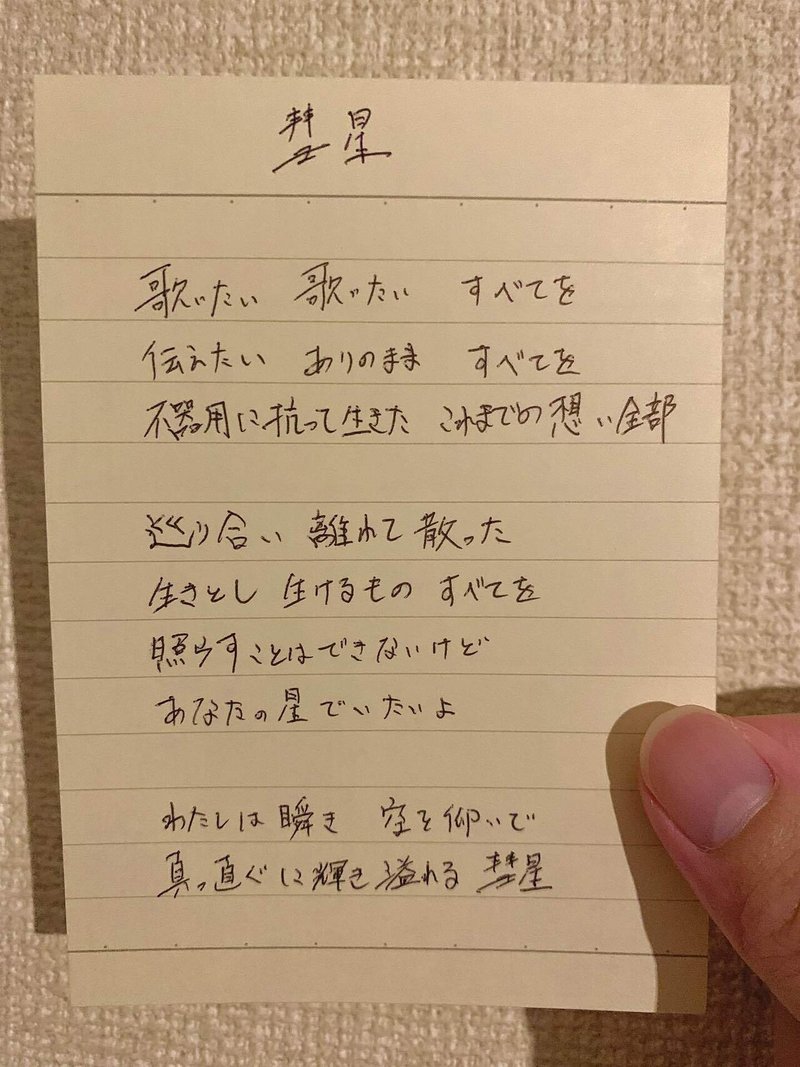 彗星
歌いたい 歌いたい すべてを
伝えたい ありのまま すべてを
不器用に抗って生きた これまでの想い全部
巡り合い 離れて散った
生きとし 生けるもの すべてを
照らすことはできないけど
あなたの星でいたいよ
わたしは瞬き 空を仰いで
真っ直ぐに輝き溢れる 彗星